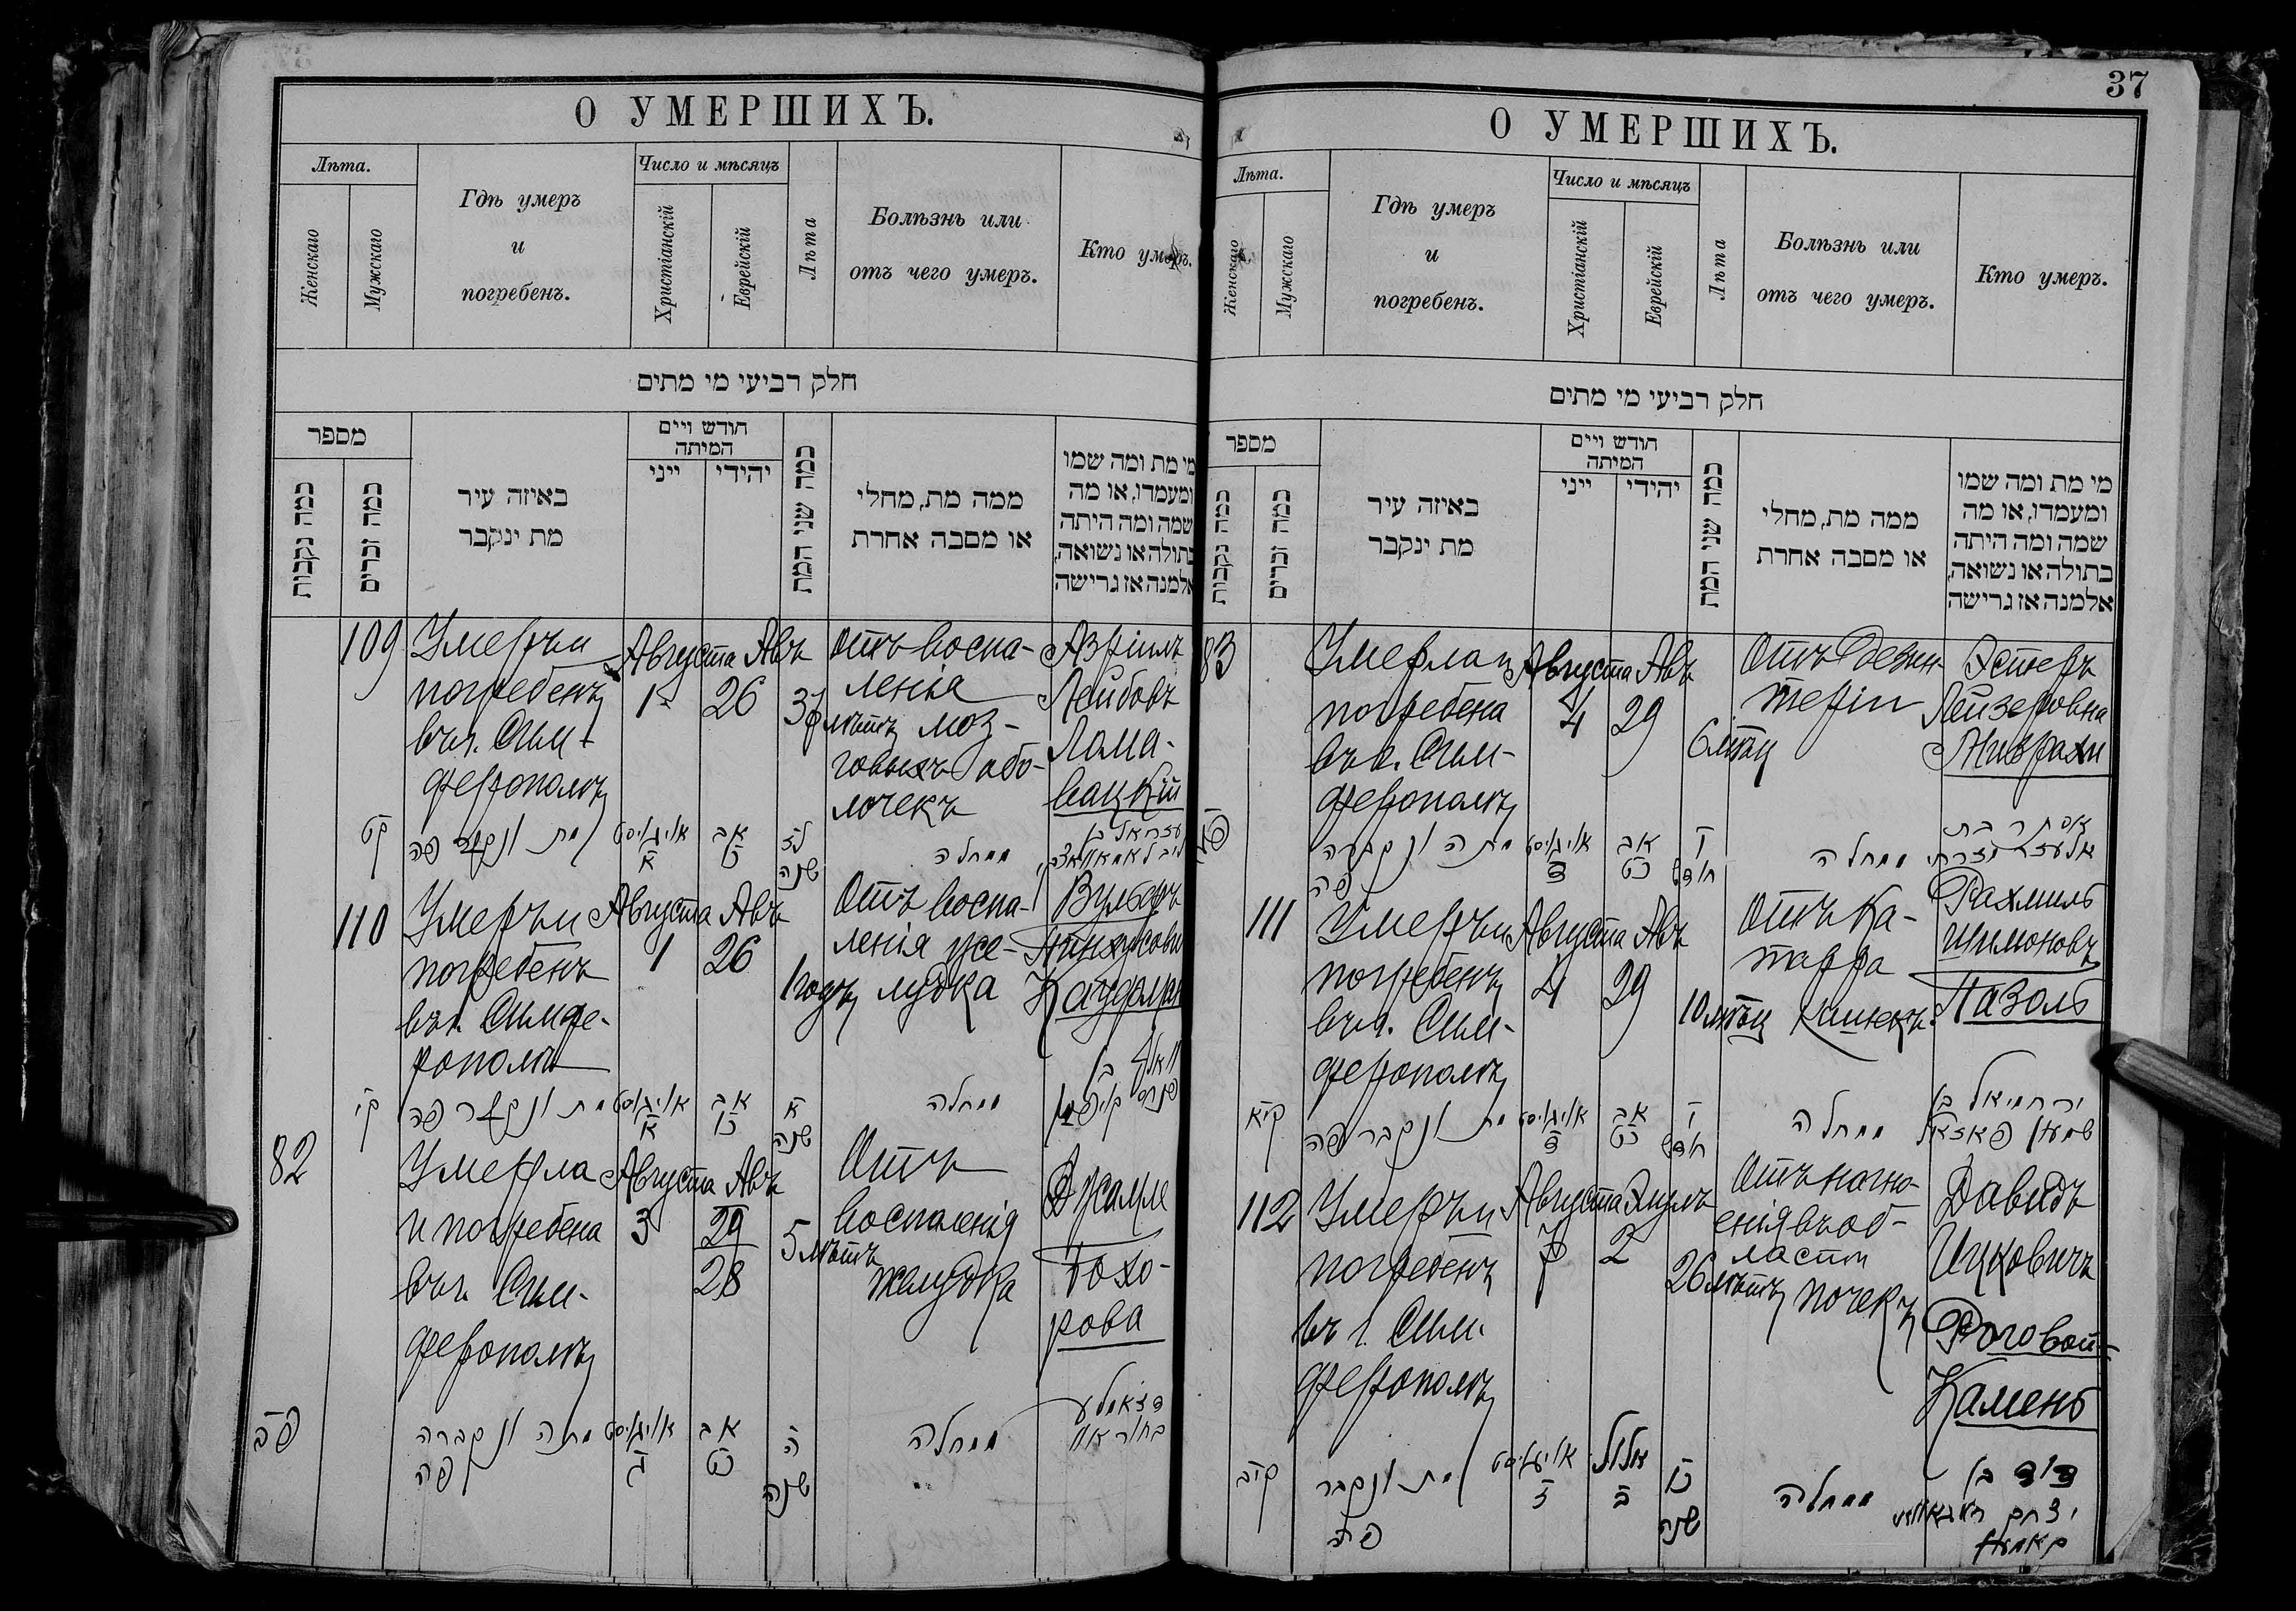 О УМЕРШИХЪ.
Лѣта.
Женскаго
Мужскаго
Гдѣ умеръ
и
погребенъ.
Число и мѣсяцъ
Христіанскій
Еврейскій
Лѣта
Болѣзнь или
отъ чего умеръ.
Кто умеръ.
חלק רביעי מי מתים
מספר
כמה נקבות
כמה זכרים
באיזה עיר
מת ינקבר
חודש ויים
המיתה
ייני
יהידי
כמה שני המת
ממה מת, מחלי
או מסבה אחרת
מי מת ומה שמו
ומעמדו, או מה
שמה ומה היתה
בתולה או נשואה,
אלמנה אז גרישה
109
Умеръ и
погребенъ
въ г. Сим-
ферополѣ
Августа
1
Авъ
26
37 лѣтъ
Отъ воспа-
ленія
моз-
говыхъ обо-
лочекъ
Азріилъ
Лейбовъ
Лома-
вацкій
קט
מת ונקבר פה
אויגוסט
א
אב
כו
לז
שנה
ממחלה
עזריאל בן
110
Умеръ и
погребенъ
въ г. Симфе-
рополѣ
Августа
1
Авъ
26
1 годъ
Отъ воспа-
ленія же-
лудка
Вульфъ
Пинхусовъ
Кауфман
קי
מת ונקבר פה
אויגוסט
א
אב
כו
א
שנה
ממחלה
וואלף בן
פנחס קויפמן
82
Умерла
и погребена
въ г. Сим-
ферополѣ
Августа
3
Авъ
29
28
5 лѣтъ
Отъ
воспаленія
желудка
Джамле
Бохо-
рова
פב
מתה ונקברה
פה
אויגוסט
ג
אב
כט
ה
שנה
ממחלה
37
О УМЕРШИХЪ.
Лѣта.
Женскаго
Мужскаго
Гдѣ умеръ
и
погребенъ.
Число и мѣсяцъ
Христіанскій
Еврейскій
Лѣта
Болѣзнь или
отъ чего умеръ.
Кто умеръ.
חלק רביעי מי מתים
מספר
כמה נקבות
כמה זכרים
באיזה עיר
מת ינקבר
חודש ויים
המיתה
ייני
יהידי
כמה שני המת
ממה מת, מחלי
או מסבה אחרת
מי מת ומה שמו
ומעמדו, או מה
שמה ומה היתה
בתולה או נשואה,
אלמנה אז גרישה
83
Умерла и
погребена
въ г. Сим-
ферополѣ
Августа
4
Авъ
29
6 мѣц
Отъ дезин-
теріи
Эстеръ
Лейзеровна
Мизрахи
פג
מתה ונקברה
פה
אויגוסט
ד
אב
כט
ו
חודש
ממחלה
אסתר בת
אלעזר מזרחי
111
Умеръ и
погребенъ
въ г. Сим-
ферополѣ
Августа
4
Авъ
29
10 мѣц
Отъ ка-
тарра
кишекъ
Рахмиль
Шимоновъ
Пазолъ
קיא
מת ונקבר פה
אויגוסט
ד
אב
כט
י
חודש
ממחלה
ירחמיאל בן
שמעון פאזאל
112
Умеръ и
погребенъ
въ г. Сим-
ферополѣ
Августа
7
Элулъ
2
26 лѣтъ
Отъ нагно-
енія въ об-
ласти
почекъ
Давидъ
Ицковичъ
Роговой-
Камень
קיב
מת ונקבר
פה
אויגוסט
ז
אלול
ב
כו
שנה
ממחלה
דוד בן
יצחק ראגאוואי
קאמען